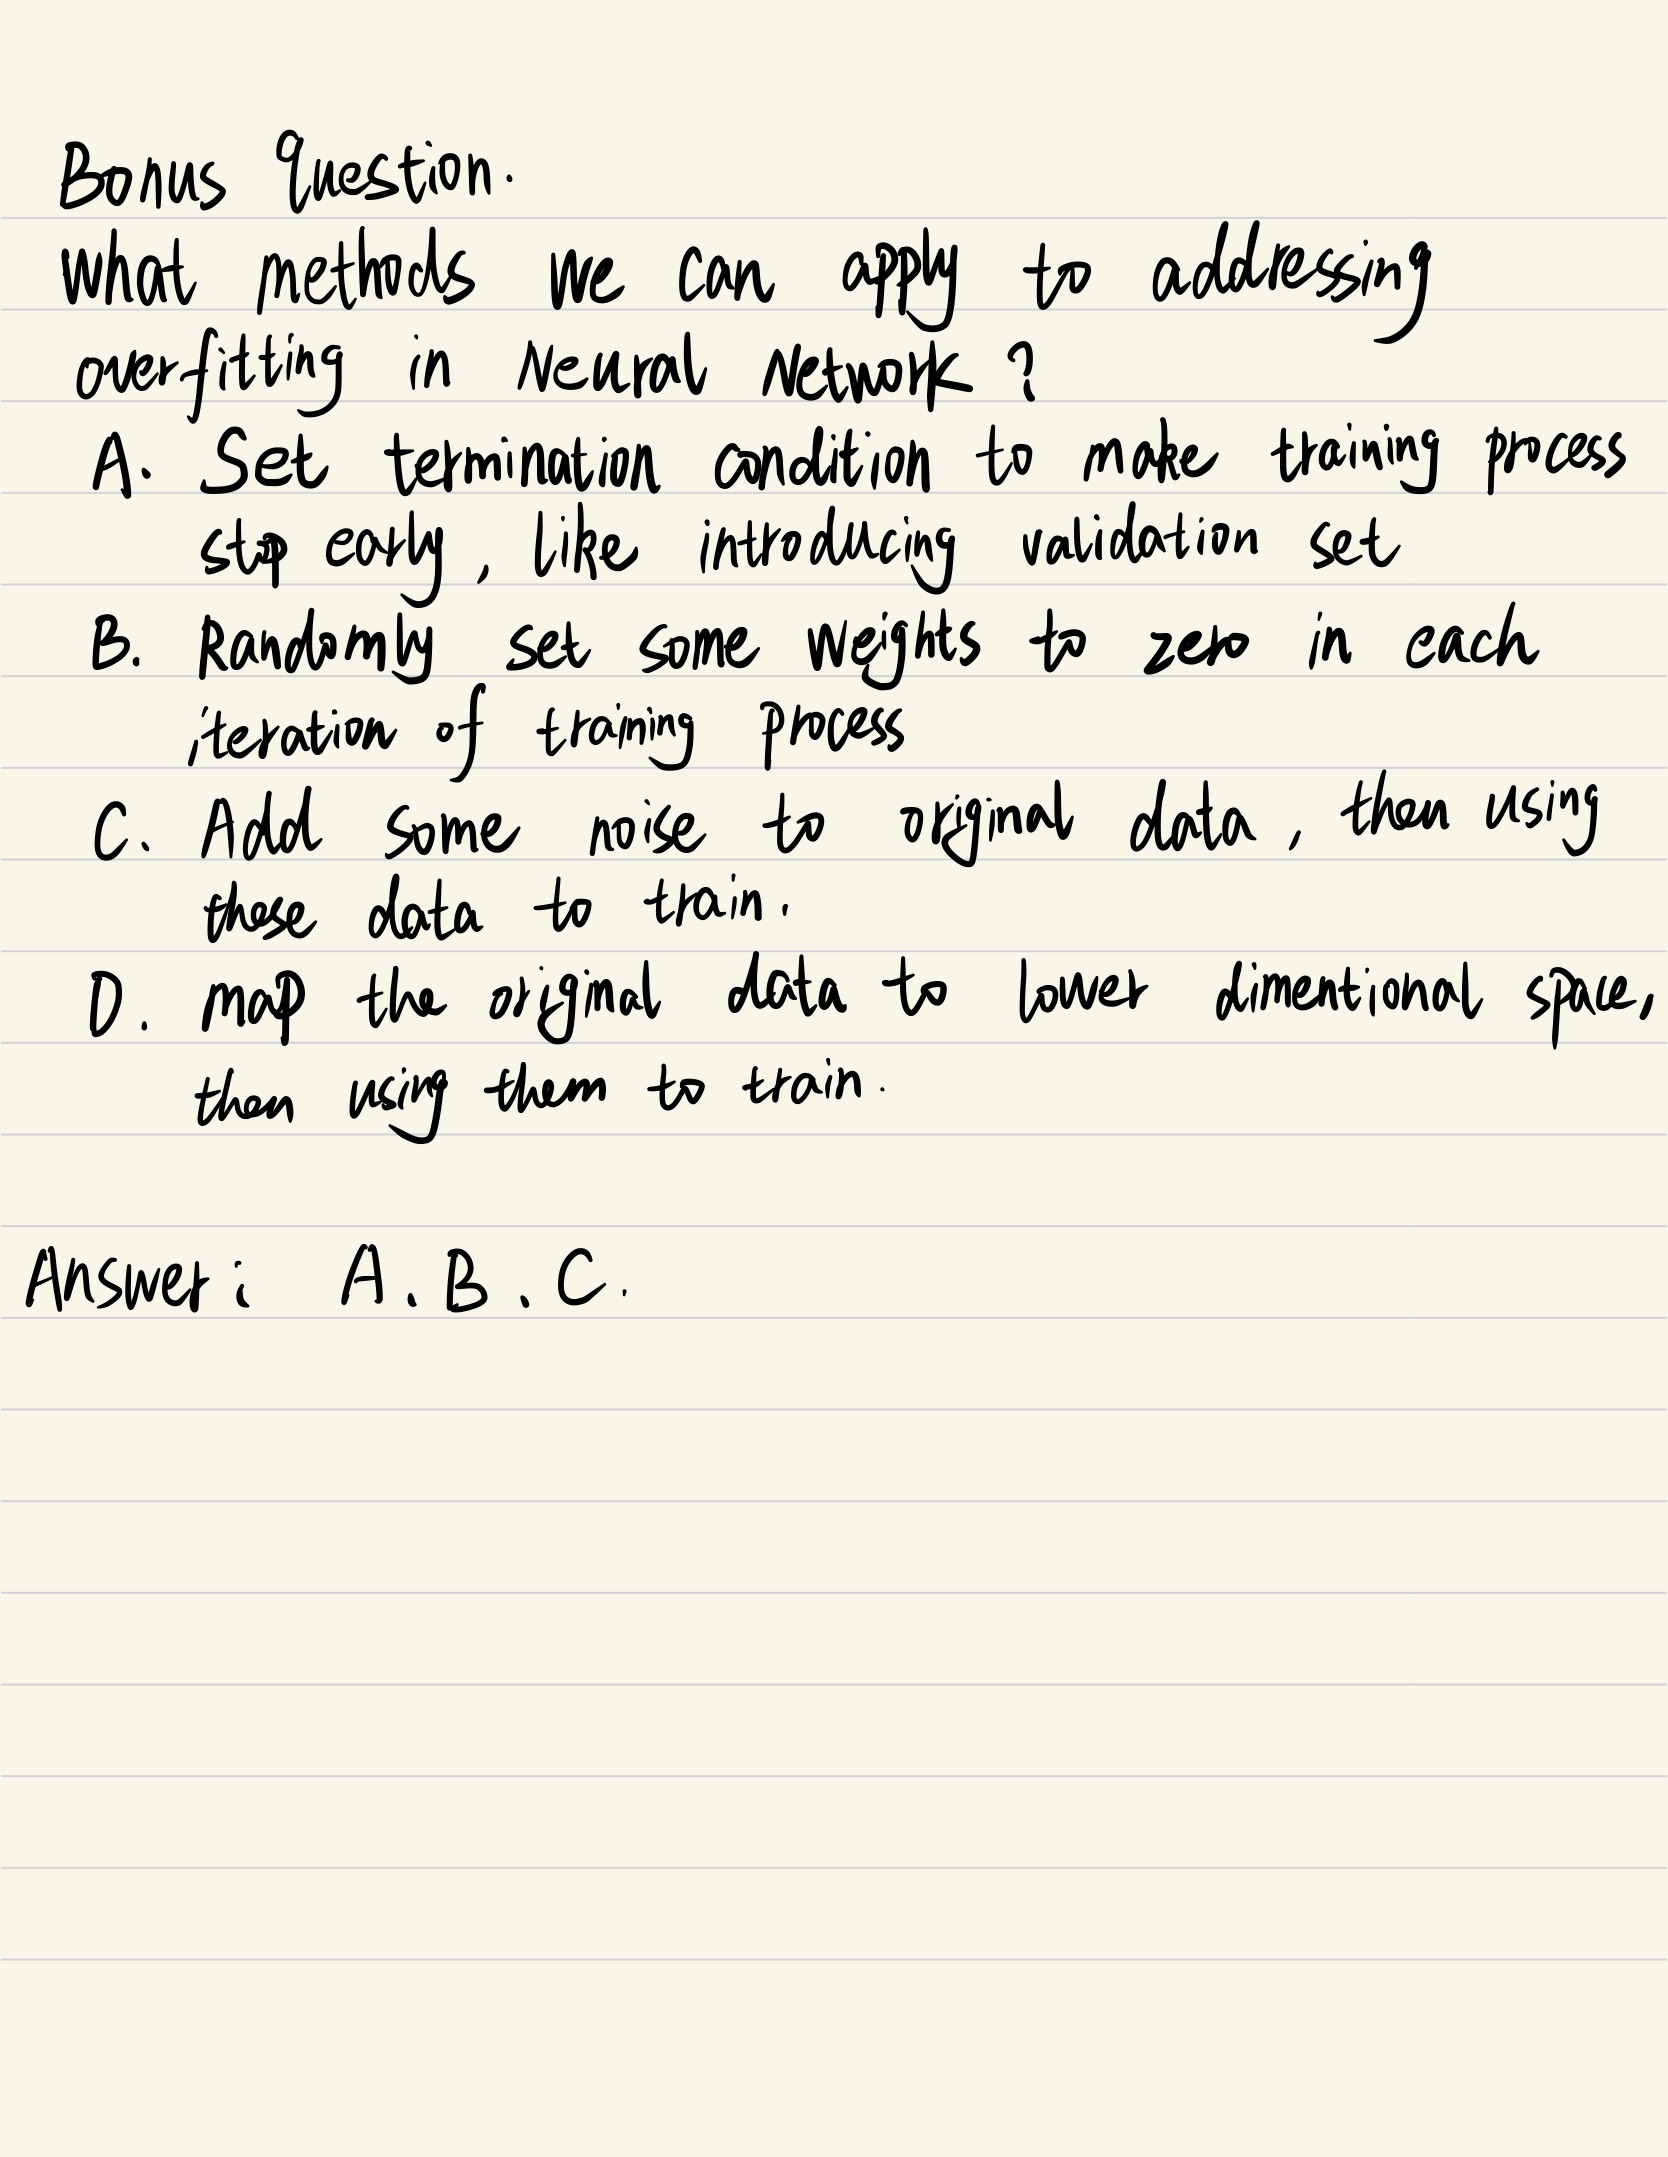 Bonus Question.
What methods we can apply to addressing
overfitting in Neural Network ?
A. Set termination condition to make training process
stop early, like introducing validation set
B. Randomly set some weights to zero in each
iteration of training process
C. Add some noise to original data, then using
these data to train.
D. map the original data to lower dimentional space,
then using them to train.
Answer: A.B.C.